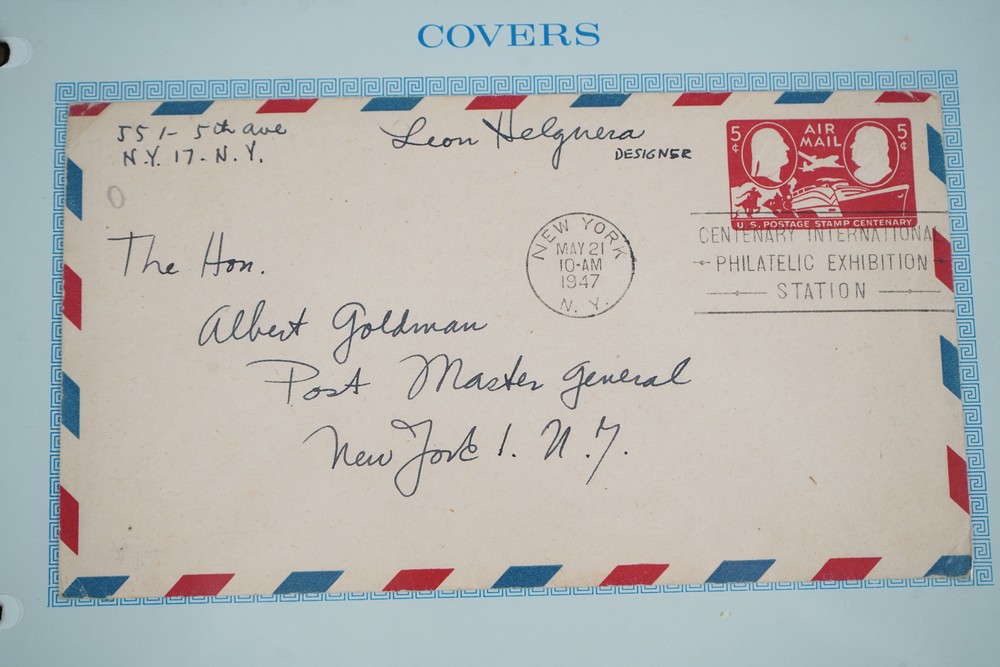 COVERS
551- 5th ave
N.Y. 17- N.Y.
Leon Helguera
DESIGNER
5¢ AIR MAIL 5¢
U.S. POSTAGE STAMP CENTENARY
NEW YORK
MAY 21
10-AM
1947
N. Y.
CENTENARY INTERNATIONA
PHILATELIC EXHIBITION
STATION
The Hon.
Albert Goldman
Post Master General
New York 1. N.Y.